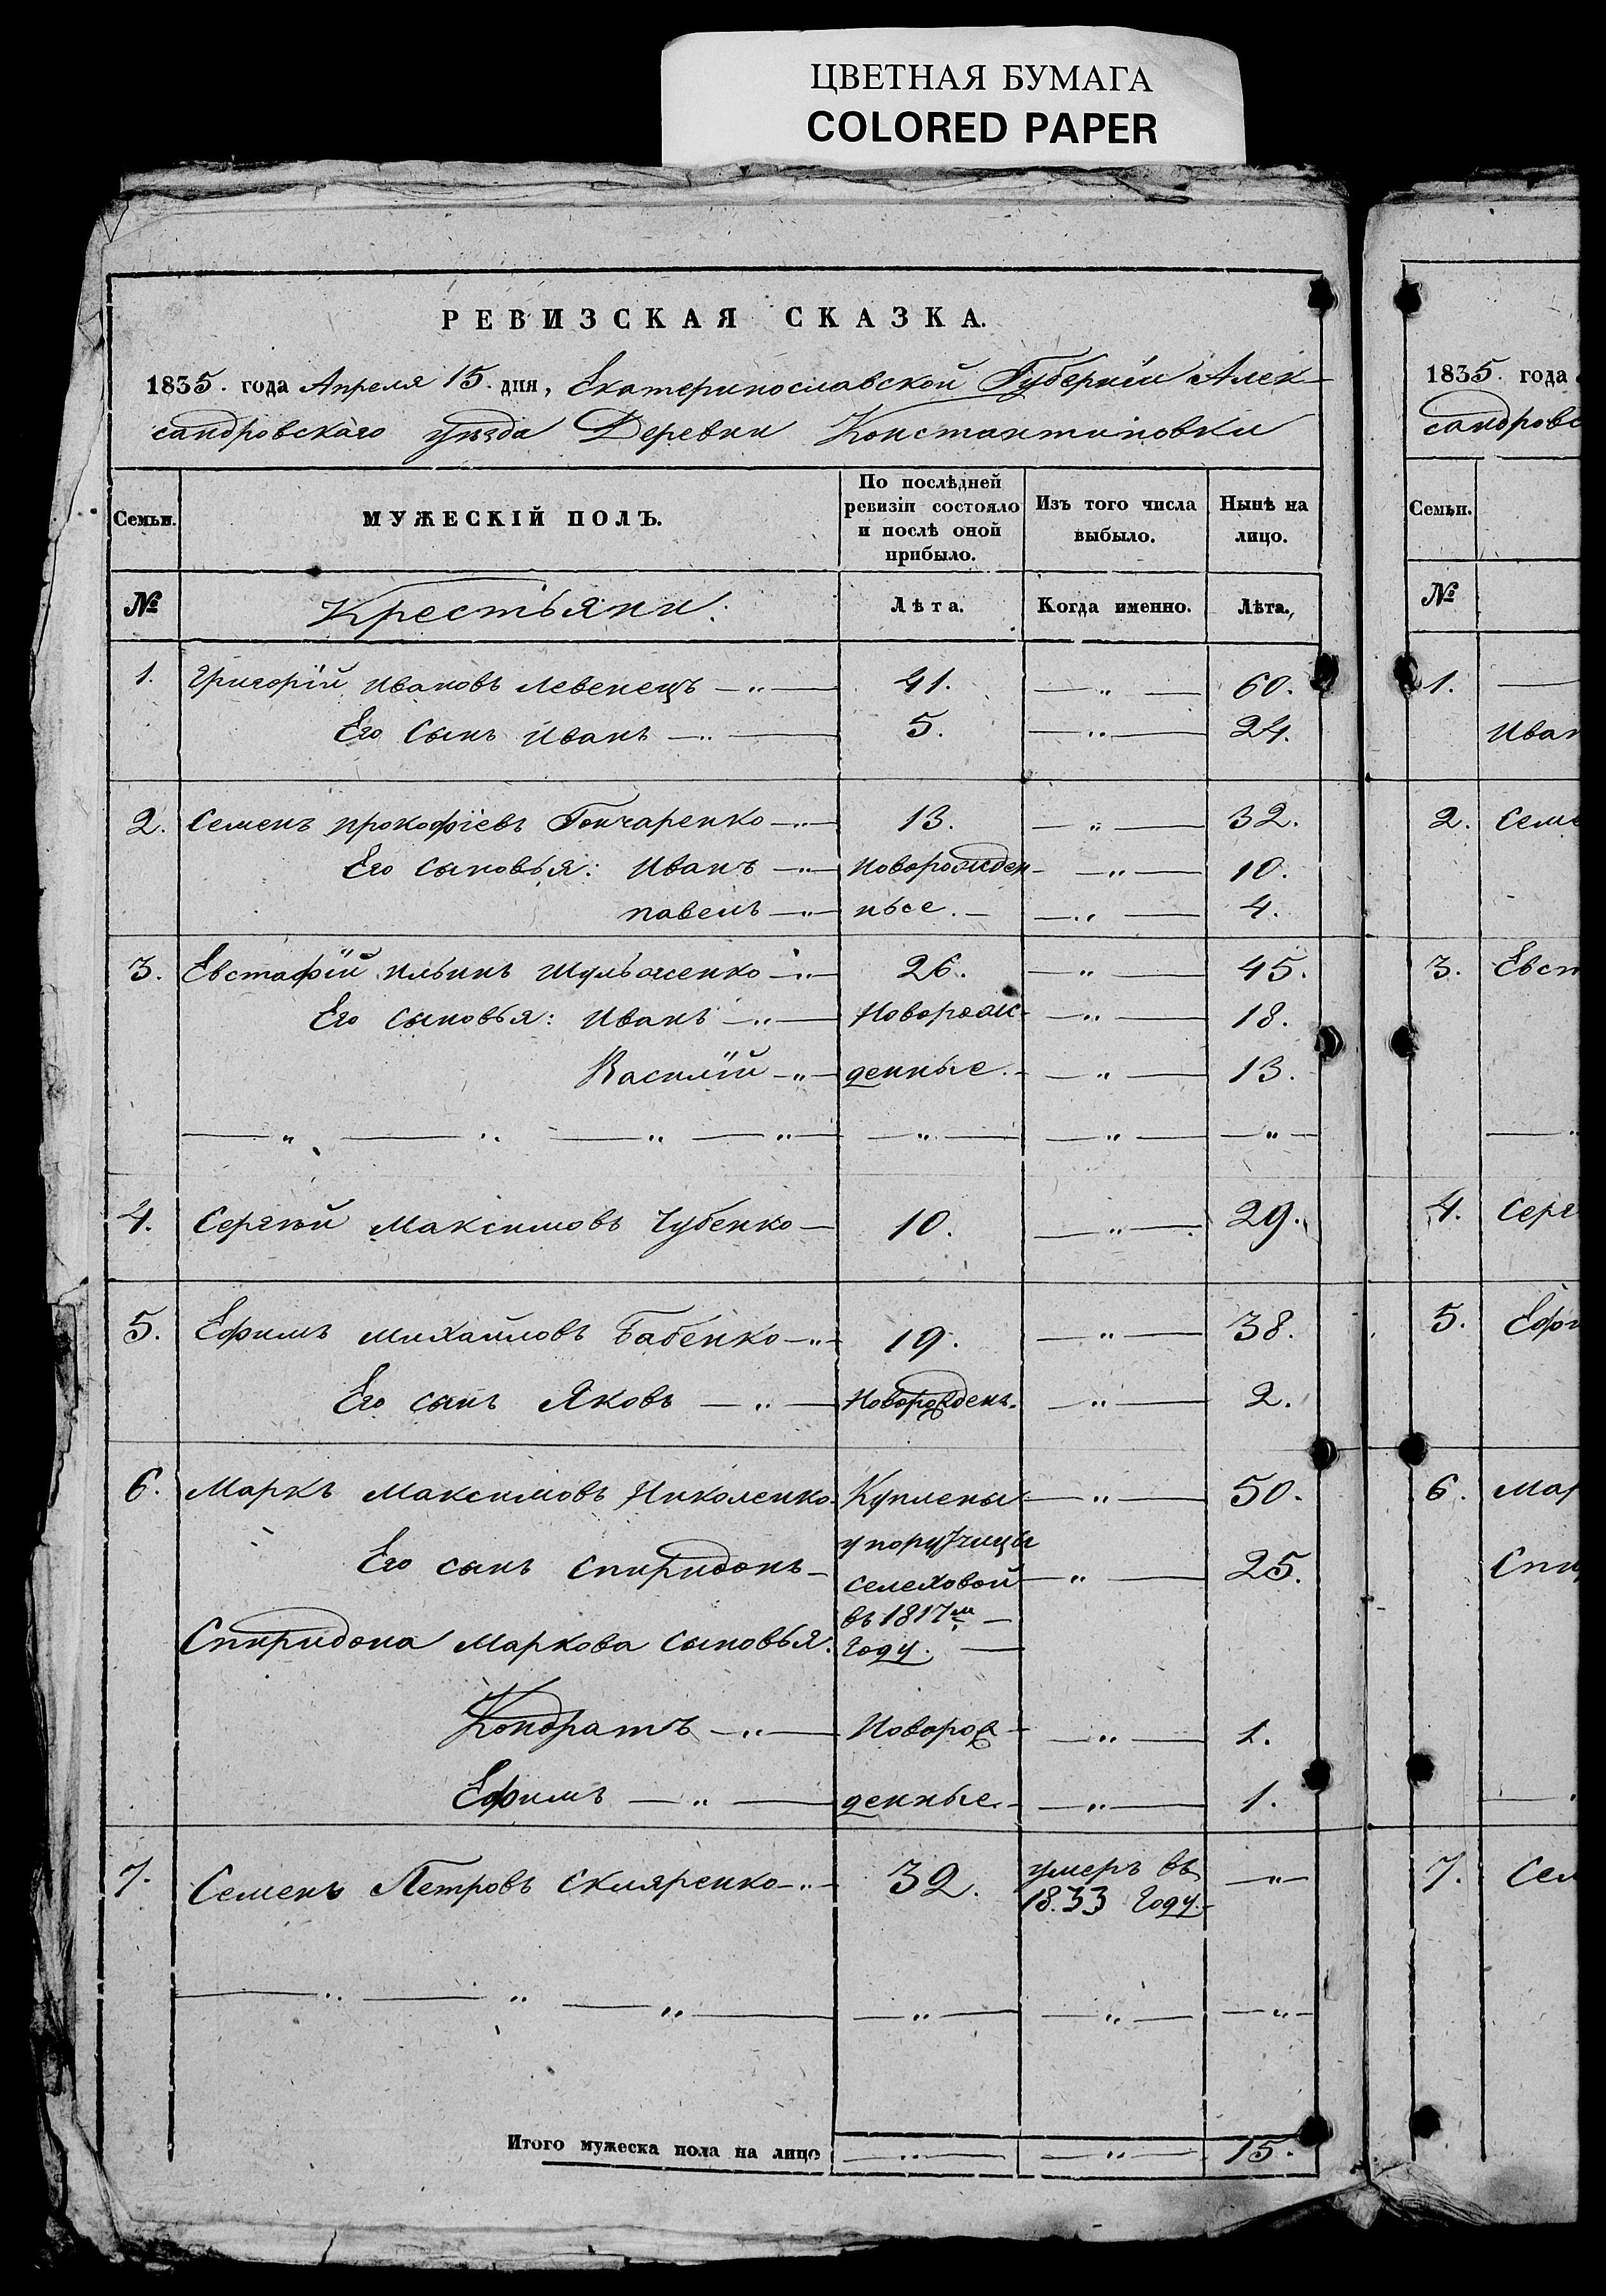 ЦВЕТНАЯ БУМАГА
COLORED PAPER
РЕВИЗСКАЯ СКАЗКА.
1835. года Апреля 15. дня, Екатеринославской Губернiи Алек-
сандровскаго уѣзда Деревни Константиновки
Семьи. МУЖЕСКIЙ ПОЛЪ. По послѣдней ревизiи состояло и послѣ оной прибыло. Изъ того числа выбыло. Нынѣ на лицо.
№ Крестьяни. Лѣта. Когда именно. Лѣта.
1. Григорiй Ивановъ Левенецъ — „ — 41. — „ — 60.
Его Сынъ Иванъ — „ — 5. — „ — 24.
2. Семенъ прокофiевъ Гончаренко — „ — 13. — „ — 32.
Его сыновья: Иванъ — „ — Новорожден- — „ — 10.
павелъ — „ — ные. — — „ — 4.
3. Евстафiй Ильинъ Шульженко — „ — 26. — „ — 45.
Его сыновья: Иванъ — „ — Новорож- — „ — 18.
Василiй — „ — денные. — — „ — 13.
— „ — „ — „ — „ — — „ — — „ — — „ —
4. Сергѣй Максимовъ Чубенко — 10. — „ — 29.
5. Ефимъ Михайловъ Бабенко — „ — 19. — „ — 38.
Его сынъ Яковъ — „ — Новорожденъ. — „ — 2.
6. Маркъ Максимовъ Николенко Куплены — „ — 50.
у поручицы
Его сынъ Спиридонъ — селеховой — „ — 25.
въ 1817м —
Спиридона Маркова сыновья: году. —
Кондратъ — „ — Новорож- — „ — 1.
Ефимъ — „ — денные. — — „ — 1.
7. Семенъ Петровъ Скляренко — „ — 32. умеръ въ — „ —
1833 году.
— „ — „ — „ — — „ — — „ — — „ —
Итого мужеска пола на лицо — „ — — „ — 15.
1835. года
сандровс
Семьи.
№
1. —
Иван
2. Семе
3. Евст
—
4. Серг
5. Ефи
6. Мар
Спи
—
7. Сем